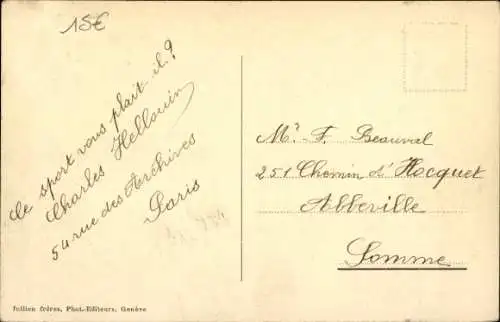 15€
Ce sport vous plait il?
Charles Hellouin
54 rue des Archives
Paris
Mr. F. Beauval
251 Chemin d'Hocquet
Abbeville
Somme
Jullien frères, Phot.-Editeurs, Genève